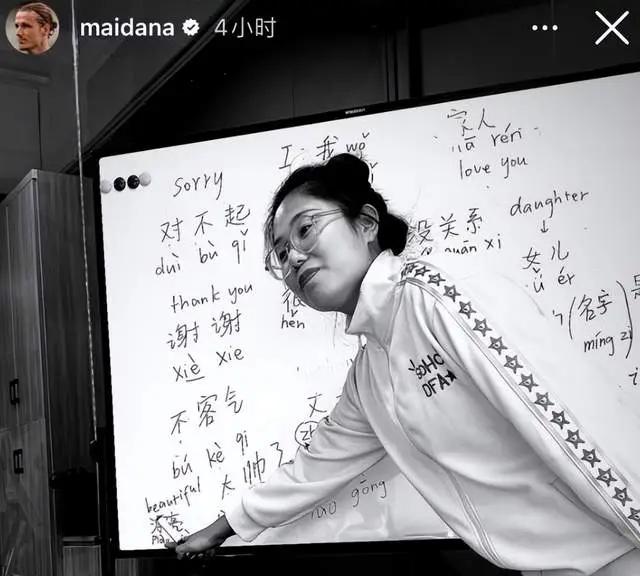 maidana 4小时
Sorry
对不起
duì bù qǐ
thank you
谢谢
xiè xie
不客气
bú kè qi
beautiful
太帅了
漂亮
I: 我 wǒ
很
hěn
家人
jiā rén
love you
没关系
guān xi
daughter
↓
女儿
nǚ ér
(名字
míng zi
gōng
SDHC
DFA★